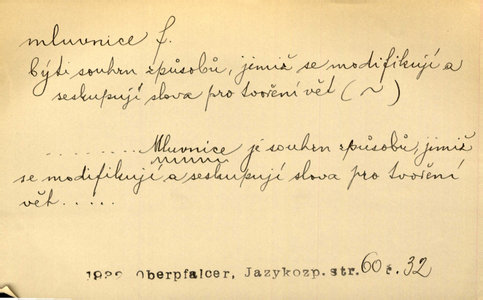 mluvnice f.
býti souhrn způsobů, jimiž se modifikují a
seskupují slova pro tvoření vět (~)
......... Mluvnice je souhrn způsobů, jimiž
se modifikují a seskupují slova pro tvoření
vět.....
1932 Oberpfalcer, Jazykozp. str. 60 č. 32